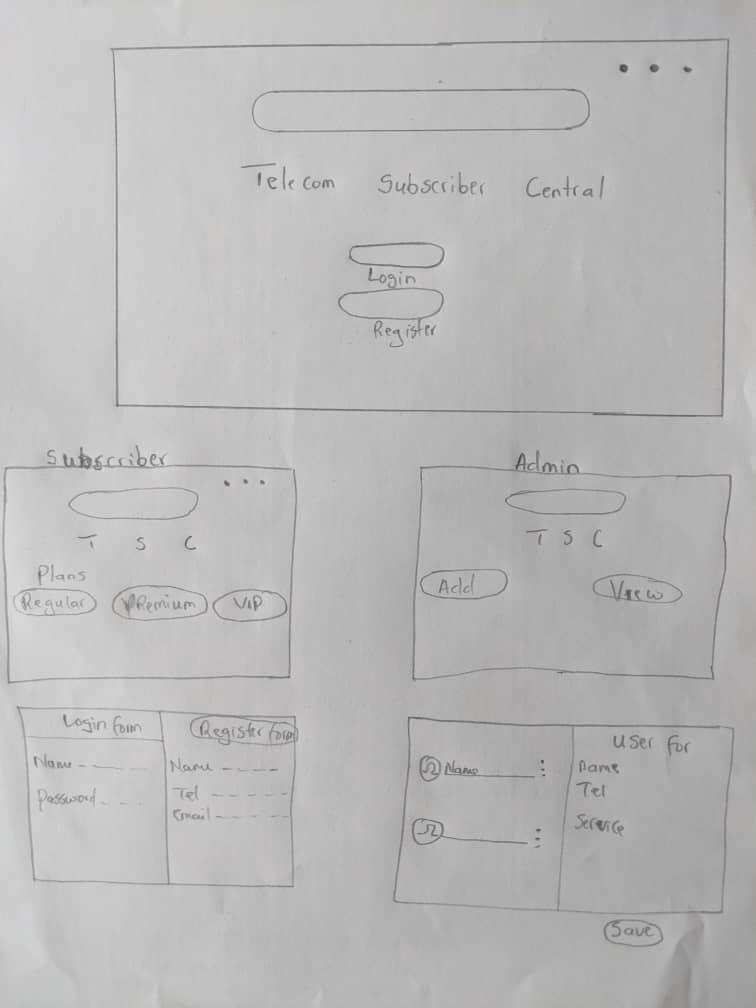 Telecom Subscriber Central
Login
Register
Subscriber
T S C
Plans
Regular PRemium VIP
Admin
T S C
Add View
Login form
Name
Password
Register form
Name
Tel
Email
Name
User for
Name
Tel
Service
Save